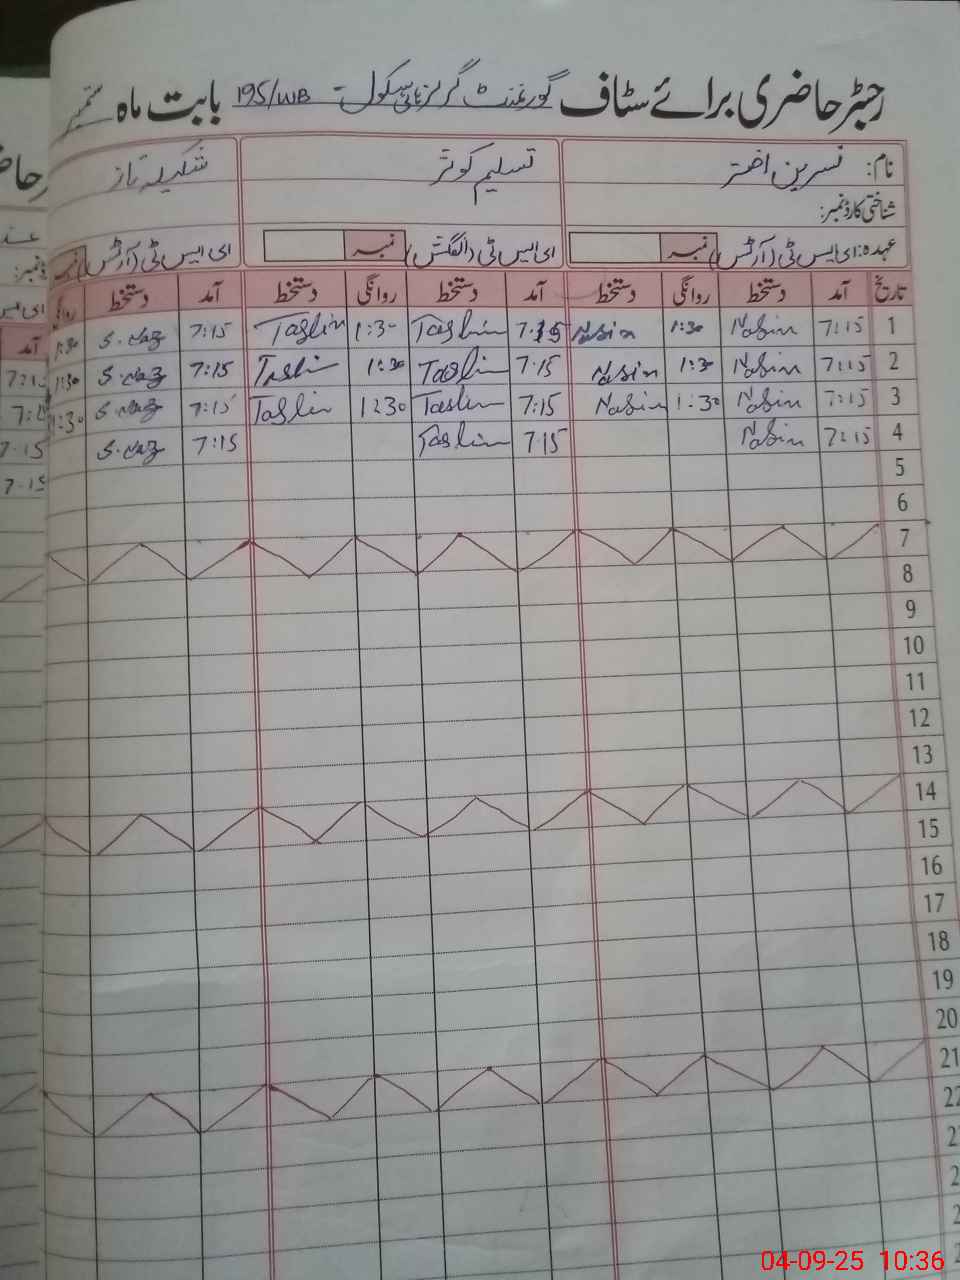 رجسٹر حاضری برائے سٹاف گورنمنٹ گرلز ہائی سکول 195/WB بابت ماہ ستمبر
نام: نسرین اختر تسلیم کوثر شکیلہ ناز
شناختی کارڈ نمبر:
عہدہ: ای ایس ٹی (آرٹس) نمبر ای ایس ٹی (انگلش) نمبر ای ایس ٹی (آرٹس)
تاریخ آمد دستخط روانگی دستخط آمد دستخط روانگی دستخط آمد دستخط روانگی
1 7:15 Nasin 1:30 Nasin 7:15 Taslim 1:30 Taslim 7:15 S.Naz 1:30
2 7:15 Nasin 1:30 Nasin 7:15 Taslim 1:30 Taslim 7:15 S.Naz 1:30
3 7:15 Nasin 1:30 Nasin 7:15 Taslim 1:30 Taslim 7:15 S.Naz 1:30
4 7:15 Nasin 7:15 Taslim 7:15 S.Naz
5
6
7
8
9
10
11
12
13
14
15
16
17
18
19
20
21
22
آمد
7:15
7:15
7:15
7:15
04-09-25 10:36